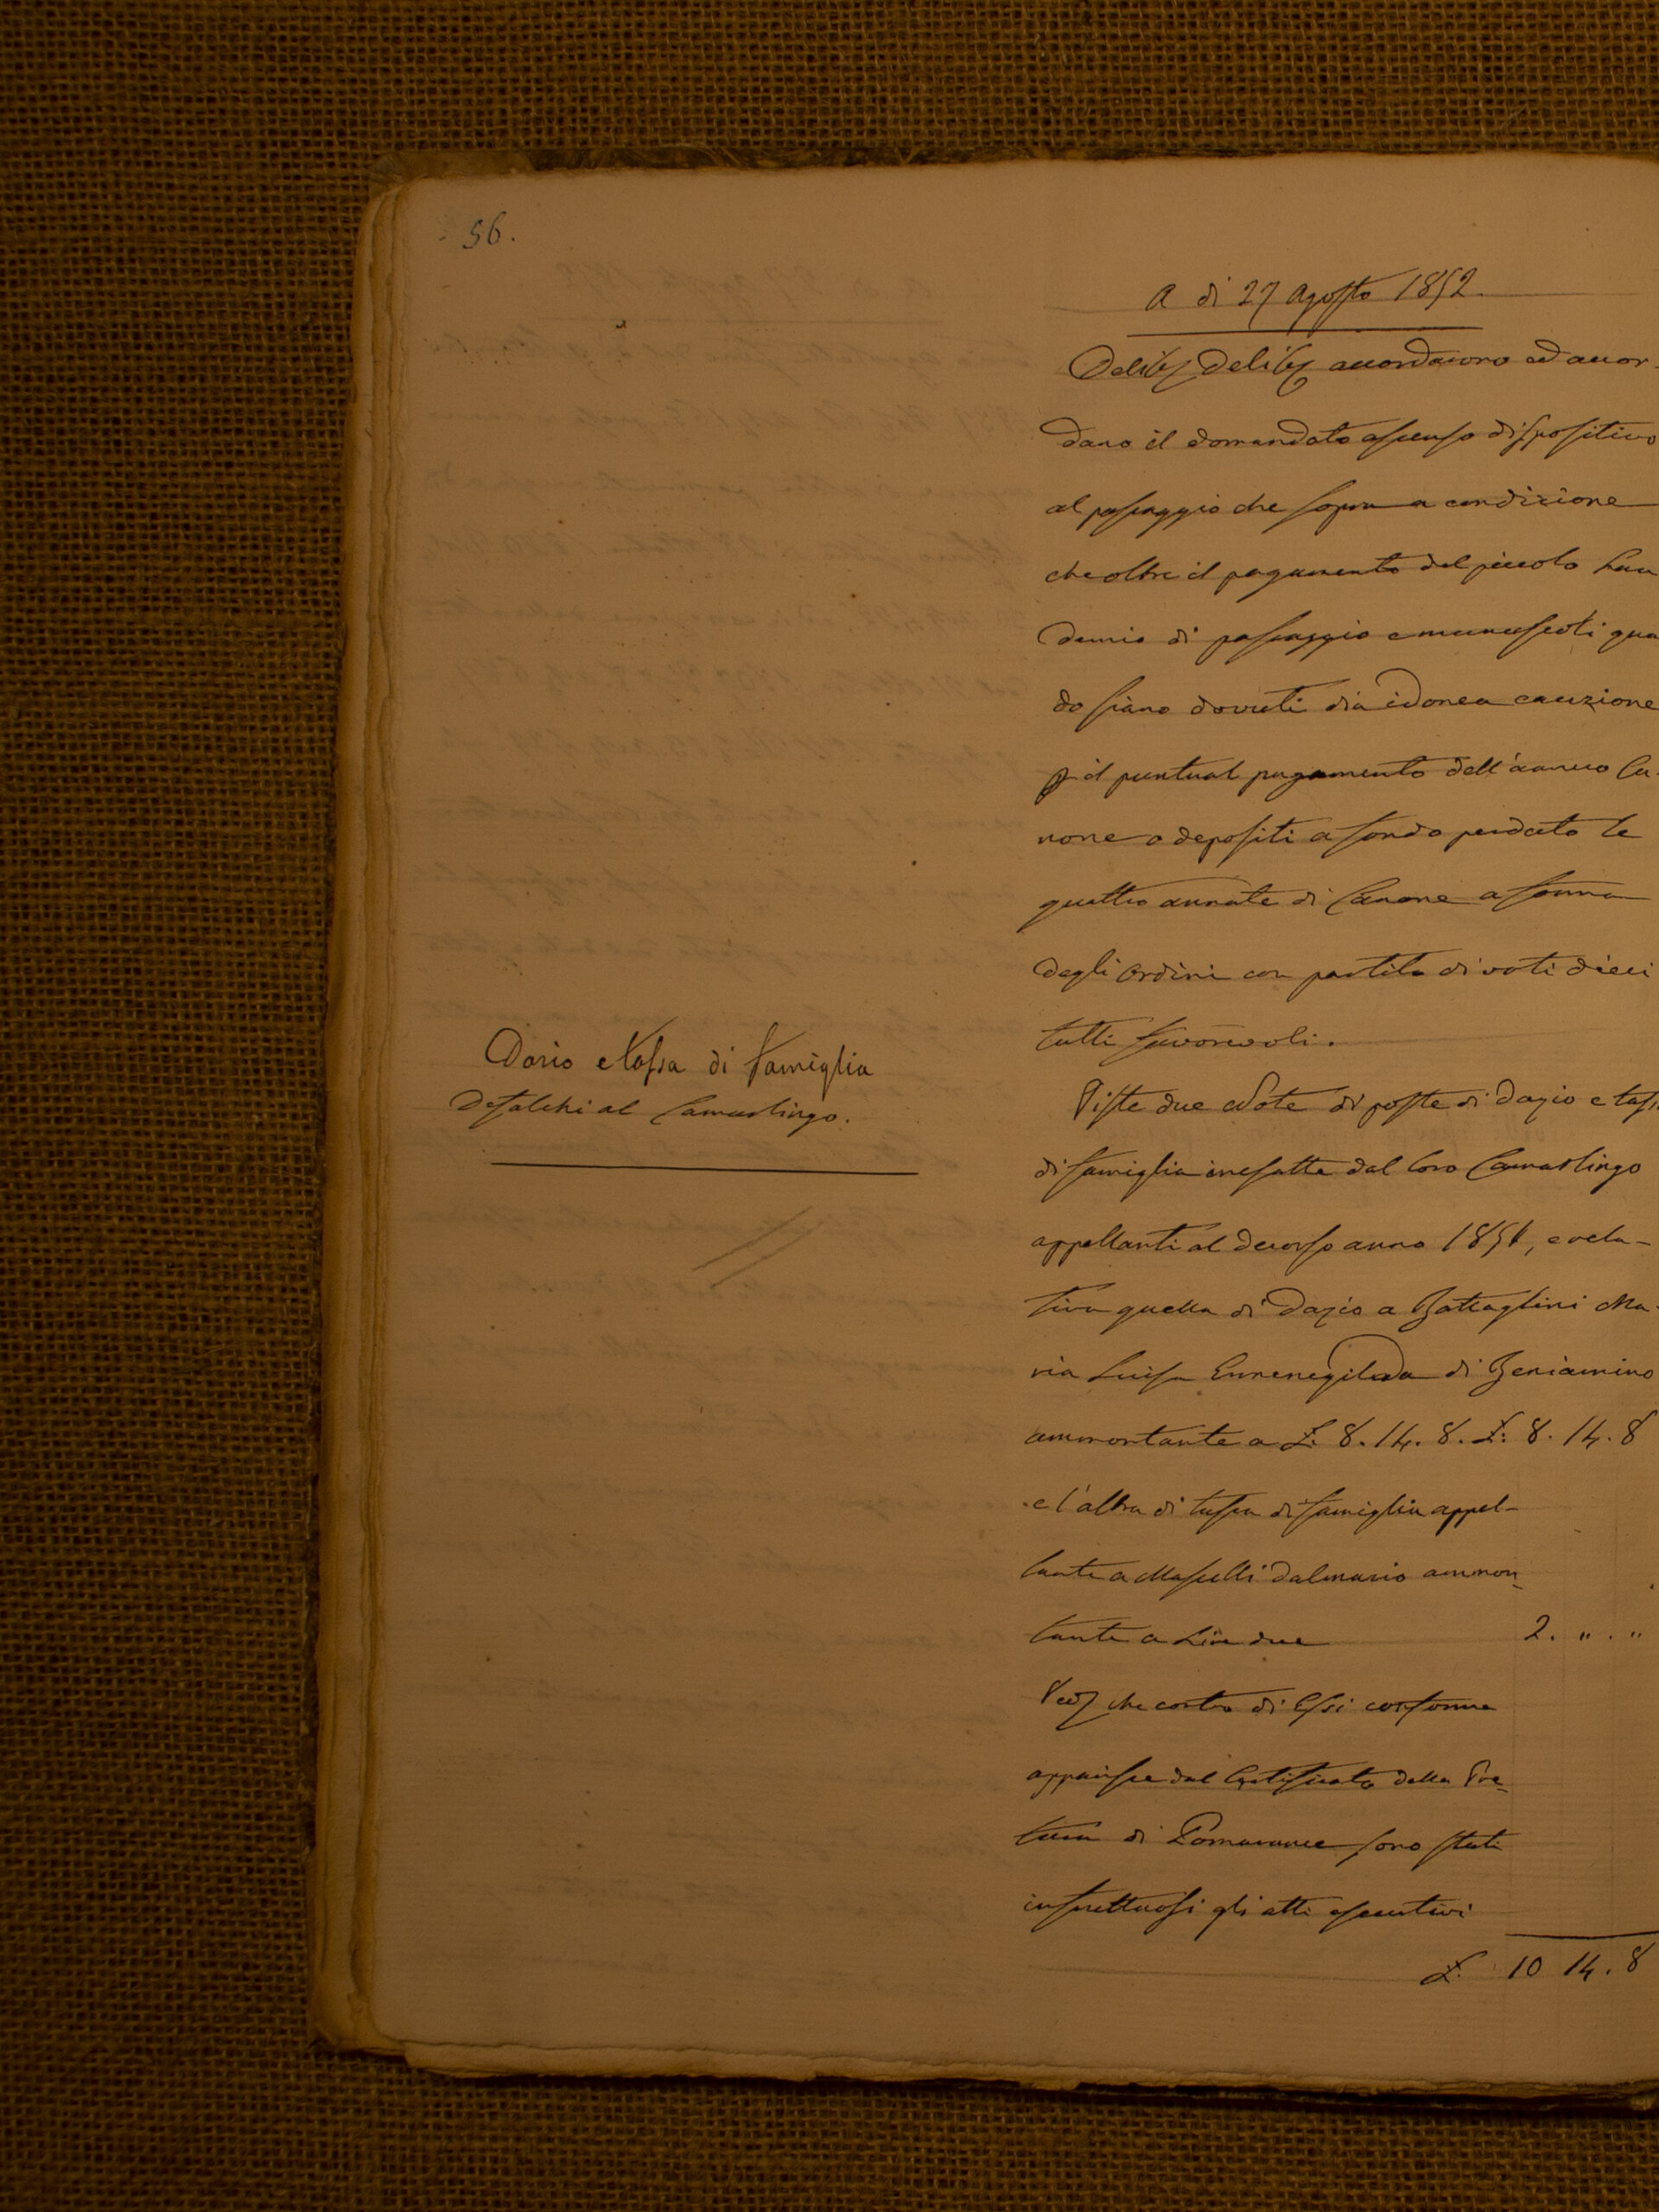 56.
A di 27 Agosto 1852.
Delib. Delib. accordarono ed accor-
dano il domandato assenso dispositivo
al passaggio che sopra a condizione
che oltre il pagamento del piccolo Lau
demio di passaggio e manuscoli qua
do siano dovuti dia idonea cauzione
p il puntual pagamento dell'annuo Ca-
none o depositi a fondo perduto le
quattro annate di Canone a forma
degli ordini con partito di voti dieci
tutti favorevoli.
Dazio e Tassa di Famiglia
Defalchi al Camarlingo.
Viste due Note di poste di Dazio e tass
di famiglia inesatte dal loro Camarlingo
appellanti al decorso anno 1851, e rela-
tiva quella di Dazio a Battaglini Ma-
ria Luisa Ermenegilda di Beniamino
ammontante a £: 8. 14. 8. £: 8. 14. 8
e l'altra di tassa di famiglia appel-
lante a Maselli Dalmazio ammon-
tante a Lire due 2. " . "
che contro di Essi conforme
apparisce dal Certificato della Pre-
tura di Pomarance sono stati
infruttuosi gli atti esecutivi
£. 10 14. 8